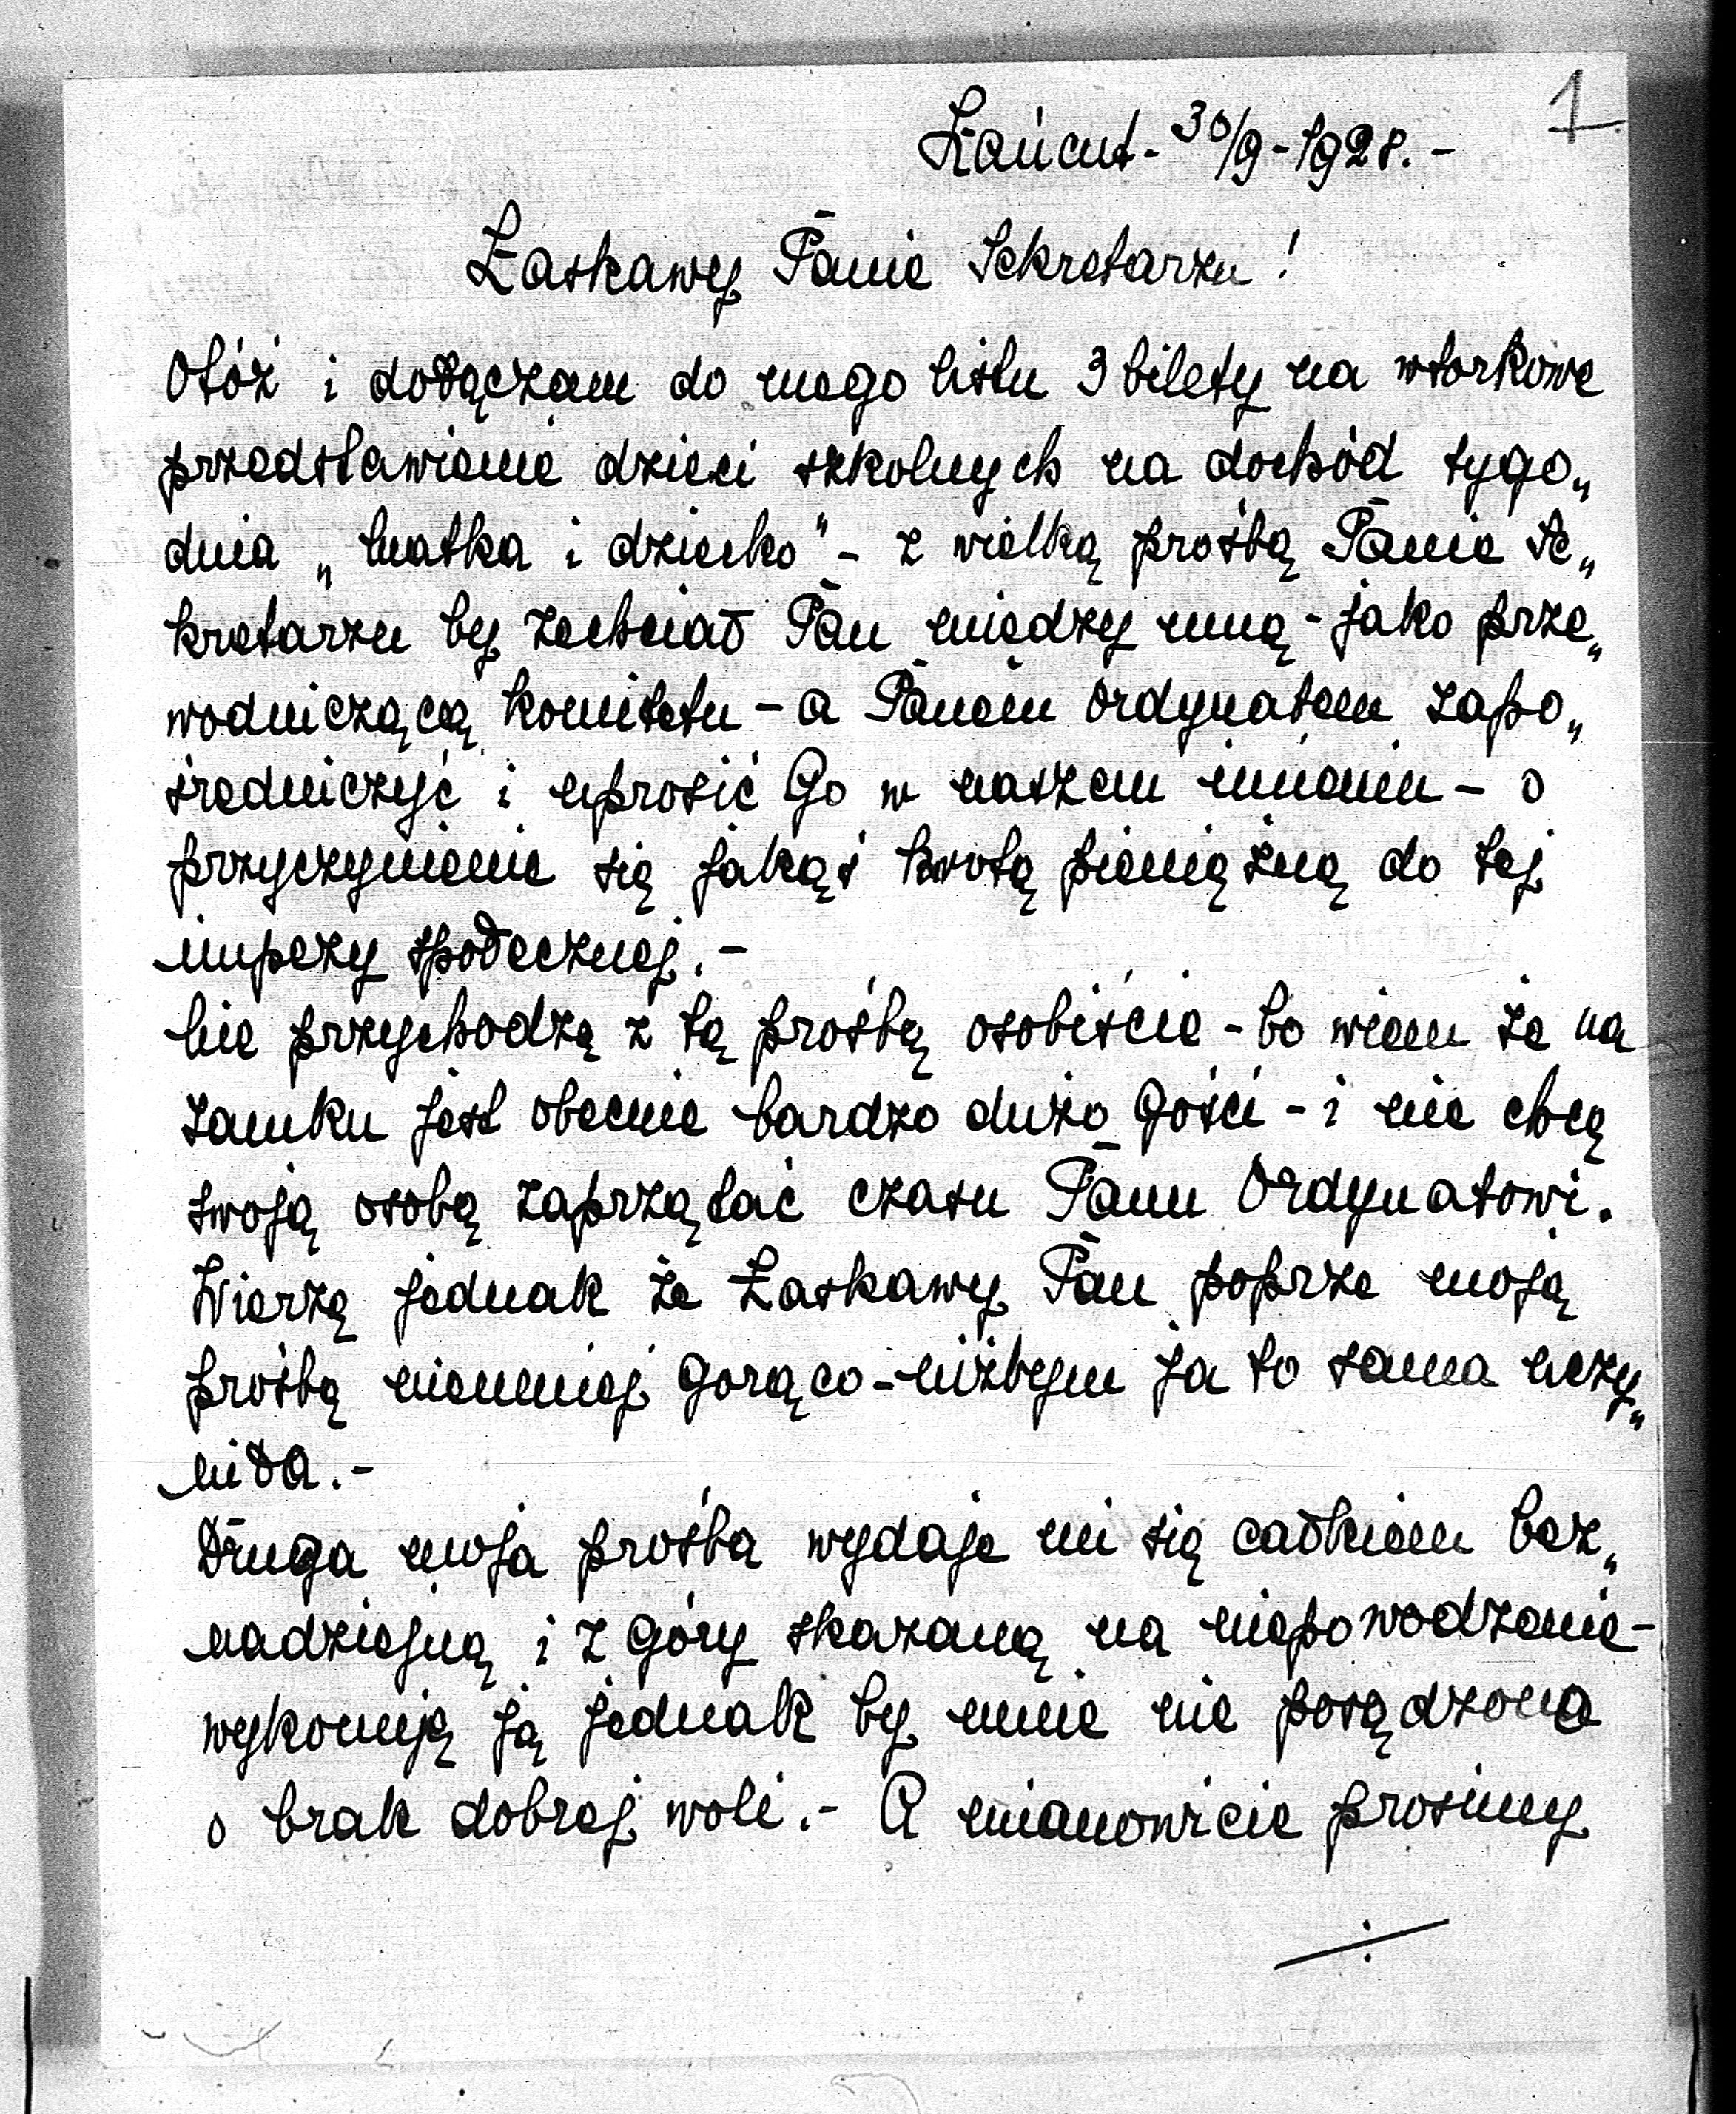 1
Łańcut - 30/9 - 1928. -
Łaskawy Panie Sekretarzu!
Otóż i dołączam do mego listu 3 bilety na wtorkowe
przedstawienie dzieci szkolnych na dochód tygo„
dnia „Matka i dziecko" - z wielką prośbą Panie Se„
kretarzu by zechciał Pan między mną - jako prze„
wodniczącą komitetu - a Panem Ordynatem zapo„
średniczyć i uprosić Go w naszem imieniu - o
przyczynienie się jakąś kwotą pieniężną do tej
impezy społecznej. -
Nie przychodzę z tą prośbą osobiście - bo wiem że na
zamku jest obecnie bardzo dużo Gości - i nie chcę
swoją osobą zaprzątać czasu Panu Ordynatowi.
Wierzę jednak że Łaskawy Pan poprze moją
prośbę niemniej gorąco - niżbym ja to sama uczy„
niła. -
Druga moja prośba wydaje mi się całkiem bez„
nadziejną i z góry skazaną na niepowodzenie -
wykonuję ją jednak by mnie nie posądzono
o brak dobrej woli. - A mianowicie prosimy